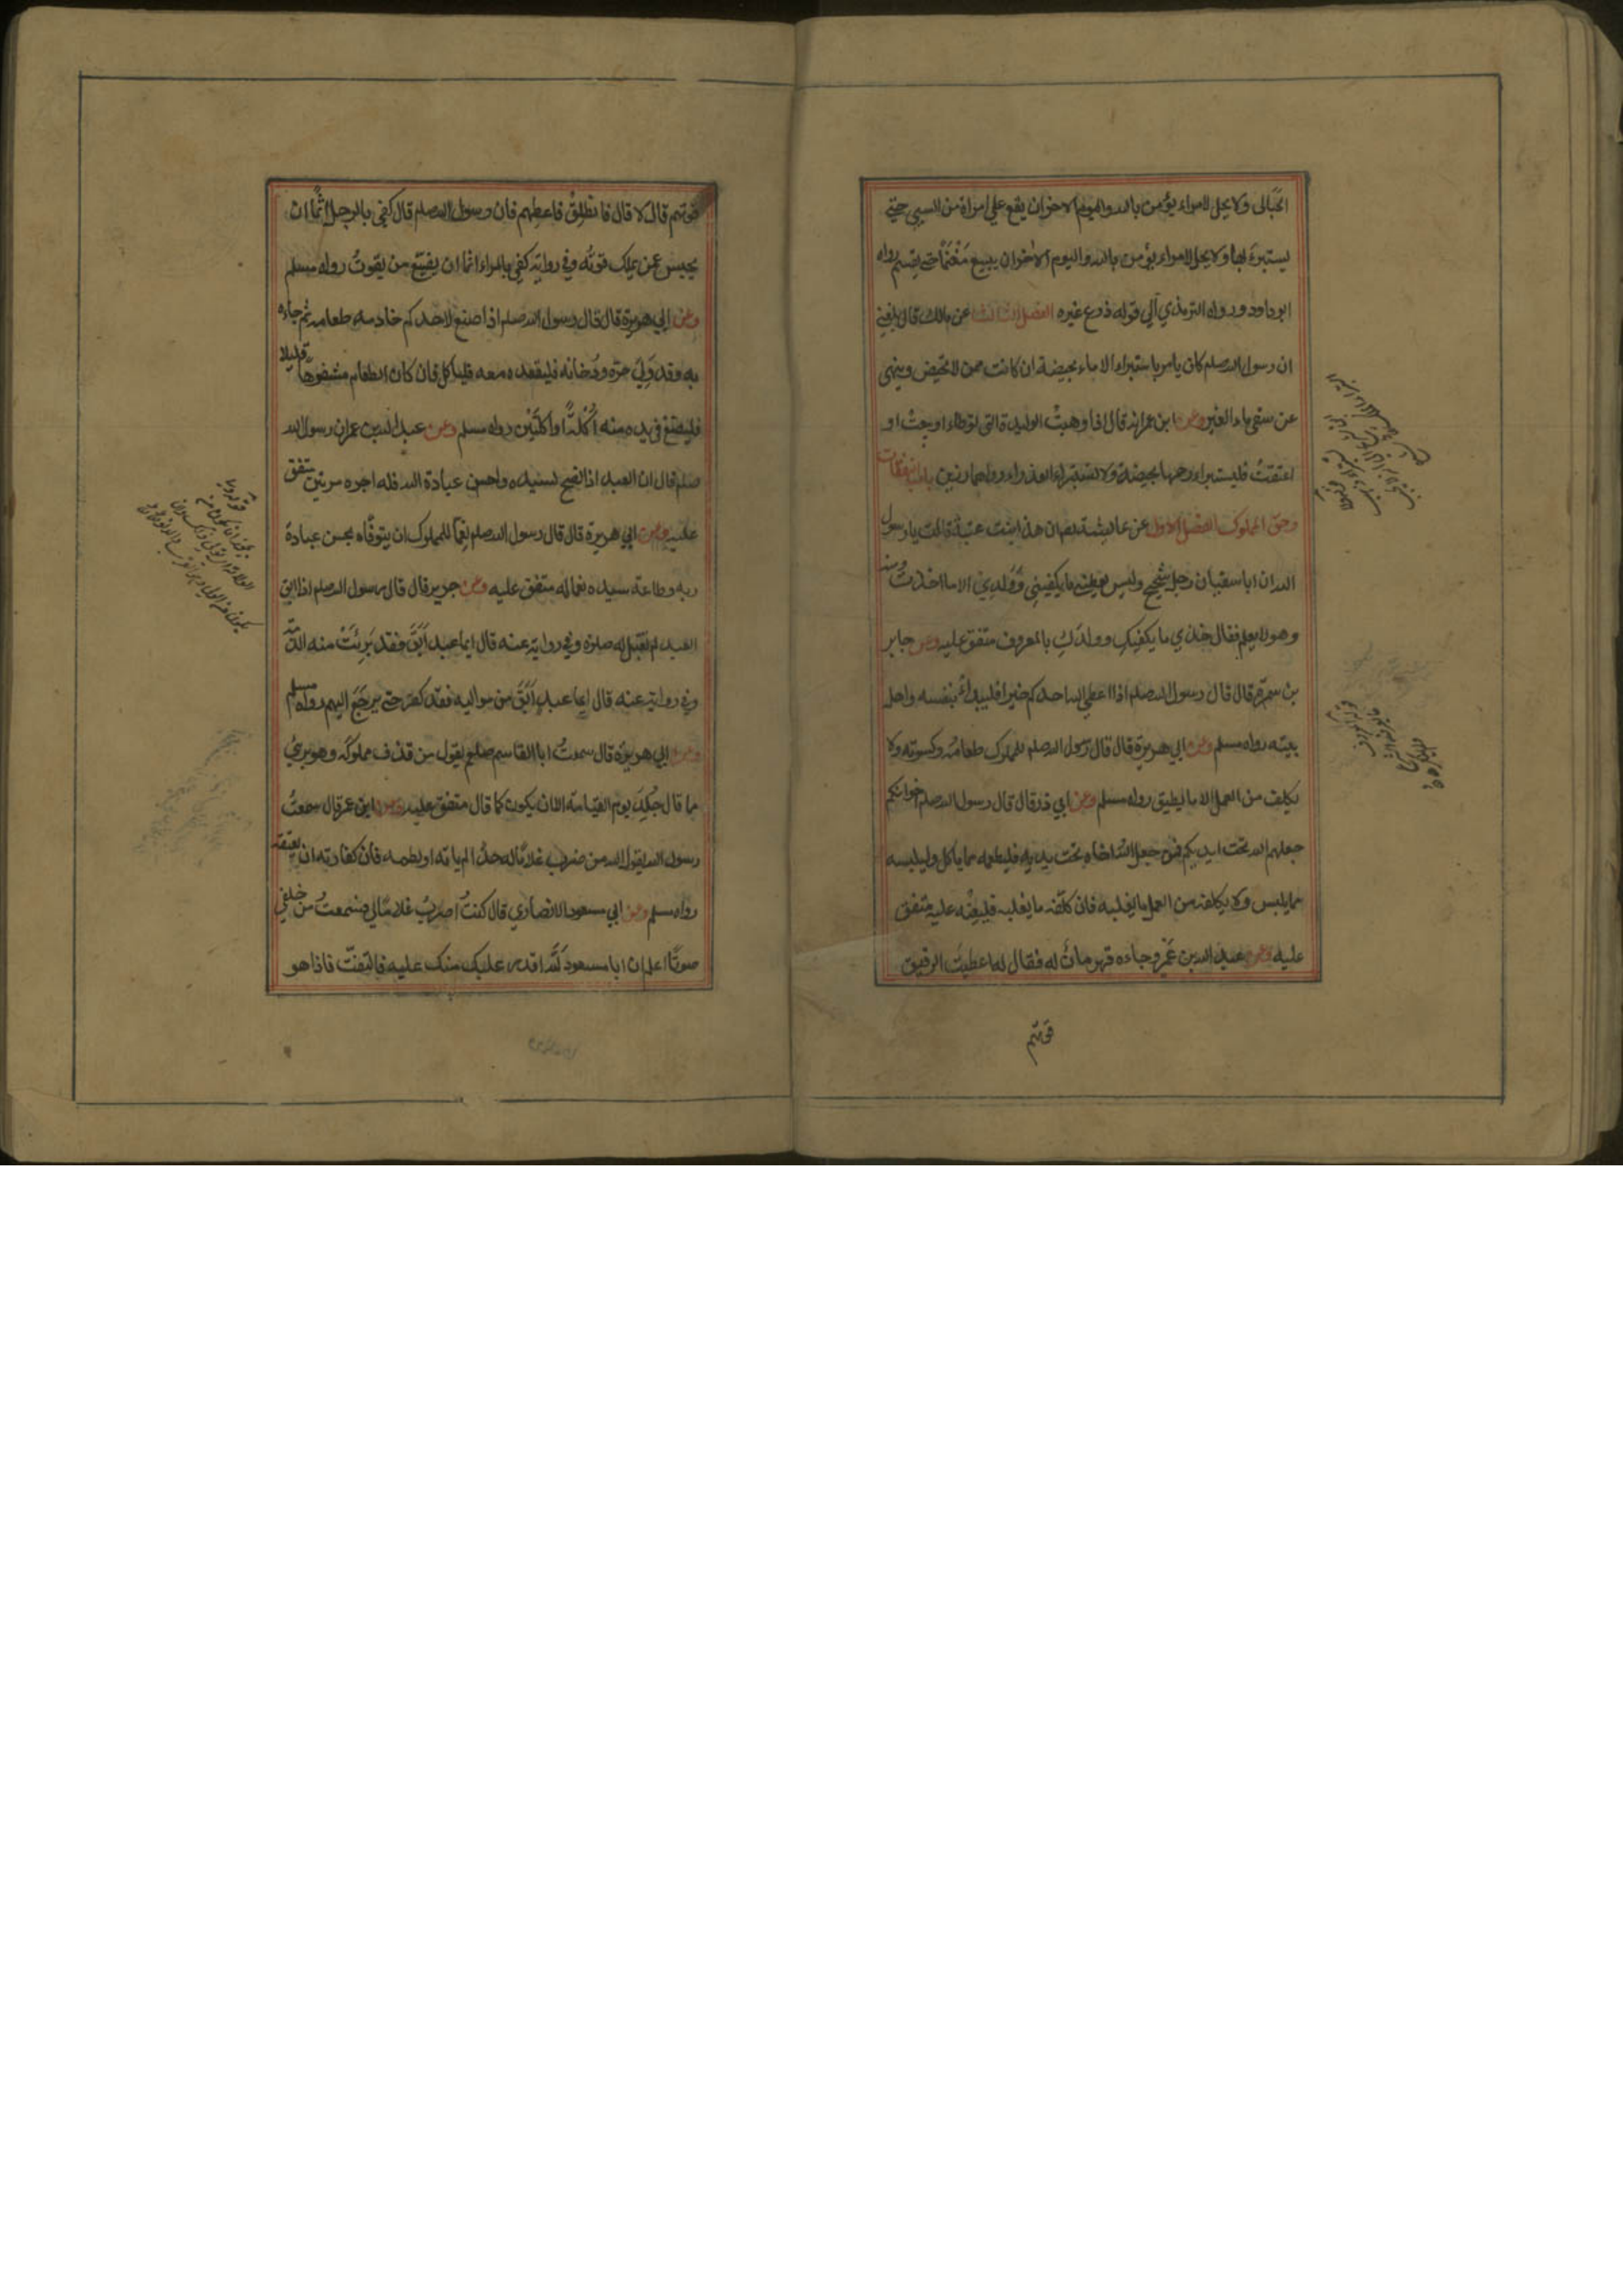 الحبالى ولا يحل لامراء يؤمن بالله واليوم الاخر ان يقع على امراة من السبي حتى
يستبرءَ لها ولا يحل لامراء يؤمن بالله واليوم الاخر ان يبيع مَغْنَمًا حتى يقسم رواه
ابو داود ورواه الترمذي الي قوله زرع غيره الفصل الثالث عن مالك قال بلغني
ان رسول الله صلم كان يامر باستبراء الاماء بحيضة ان كانت ممن لا تحيض وينهى
عن سقي ماء الغير وعن ابن عمر انه قال اذا وهبتْ الوليدة التي توطاء او بيعتْ او
اعتقتْ فليستبراء رحمها بحيضة ولا تستبراء العذراء رواهما رزين باب النفقات
وحق المملوك الفصل الاول عن عايشة ان هند ابنت عتبة قالت يا رسول
الله ان ابا سفيان رجل شحيح وليس يعطيني ما يكفيني وَوَلدِي الا ما اخذتُ منه
وهو لا يعلم فقال خذي ما يكفيكِ وولدَكِ بالمعروف متفق عليه وعن جابر
بن سمرة قال قال رسول الله صلم اذا اعطى الله احدكم خيرا فليبدأ بنفسه واهل
بيته رواه مسلم وعن ابي هريرة قال قال رسول الله صلم للمملوك طعامُه وكسوته ولا
يكلف من العمل الا ما يطيق رواه مسلم وعن ابي ذر قال قال رسول الله صلم اخوانكم
جعلهم الله تحت ايديكم فمن جعل الله اخاه تحت يديه فليطعمه مما ياكل وليلبسه
مما يلبس ولا يكلفه من العمل ما يغلبه فان كلّفه ما يغلبه فليُعِنْه عليه متفق
عليه وعن عبد الله بن عَمْرو جاءه قهرمانٌ له فقال له اعطيتَ الرقيق
قوتهم
قوتهم قال لا قال فانطلِقْ فاعطِهم فان رسول الله صلم قال كفى بالرجل اثمًا ان
يحبس عمن يملك قوتَه وفي رواية كفى بالمراء اثما ان يضيّع من يقوتُ رواه مسلم
وعن ابي هريرة قال قال رسول الله صلم اذا صنع لاحدكم خادمه طعامه ثم جاءه
به وقد وَلِيَ حره ودُخانه فليقعده معه فلياكل فان كان الطعام مشفوها قليلا
فليضع في يده منه اُكْلةً او اكلتَيْن رواه مسلم وعن عبد الله بن عمر ان رسول الله
صلم قال ان العبد اذا نصح لسيده واحسن عبادة الله فله اجره مرتين متفق
عليه وعن ابي هريرة قال قال رسول الله صلم نِعِمّا للمملوك ان يتوفّاه بحسن عبادة
ربه وطاعة سيده نعما له متفق عليه وعن جرير قال قال رسول الله صلم اذا ابق
العبد لم تقبل له صلوة وفي رواية عنه قال ايما عبد اَبَقَ فقد بَرِئَتْ منه الذمة
وفي رواية عنه قال ايما عبدٍ اَبَقَ من مواليه فقد كفر حتى يرجَعَ اليهم رواه مسلم
وعن ابي هريرة قال سمعتُ ابا القاسم صلم يقول من قذف مملوكَه وهو بريءٌ
مما قال جُلِدَ يوم القيامة الا ان يكون كما قال متفق عليه وعن ابن عمر قال سمعتُ
رسول الله يقول من ضرب غلامًا له حدًّا لم ياته او لطمه فان كفارته ان يعتقه
رواه مسلم وعن ابي مسعود الانصاري قال كنتُ اضربُ غلامًا لي فسمعتُ من خلفي
صوتًا اعلم ابا مسعود لَلّهُ اقدر عليك منك عليه فالتفتّ فاذا هو